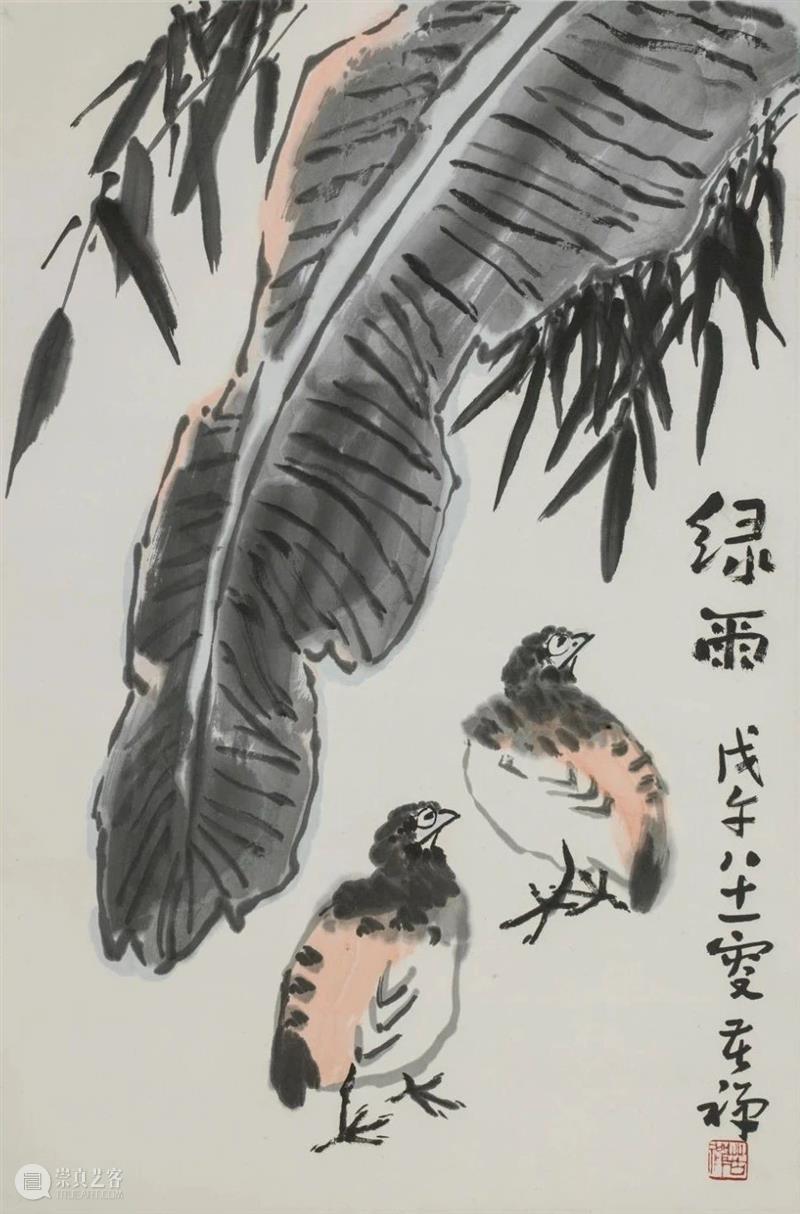 绿雨 戊午八十一叟 苦禅
崇真艺客
TRUEART.COM